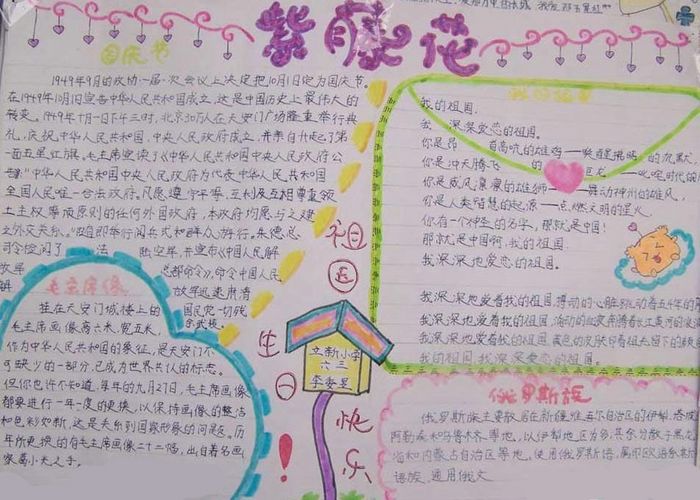 紫藤花
国庆节
1949年9月的政协一届一次会议上决定把10月1日定为国庆节。
在1949年10月1日宣告中华人民共和国成立,这是中国历史上最伟大的
转变。1949年10月1日下午三时,北京30万人在天安门广场隆重举行典
礼,庆祝中华人民共和国,中央人民政府成立,并亲自升起了第
一面五星红旗。毛主席宣读了《中华人民共和国中央人民政府公
告》“中华人民共和国中央人民政府为代表中华人民共和国
全国人民唯一合法政府。凡愿遵守平等、互利及互相尊重领
土主权等项原则的任何外国政府,本政府均愿与之建
立外交关系。”随即举行阅兵式和群众游行。朱德总
司令检阅了
法
陆空军,并宣布《中国人民解
放军
总部命令》,命令中国人民
放军迅速肃清
国民党一切残
余武装。
毛主席像
挂在天安门城楼上的
毛主席画像高六米,宽五米,
作为中华人民共和国的象征,是天安门不
可缺少的一部分,已成为世界共仰的标志。
但你也许不知道,每年的9月27日,毛主席画像
都要进行一年一度的更换,以保持画像的整洁
和色彩如新,这是关系到国家形象的问题。历
年所更换的毛主席画像二十二幅,出自著名画
家葛小天之手。
祖国生日快乐!
立新小学
六三
我的祖国,
我深深爱恋的祖国。
你是昂首高吭的雄鸡——唤醒拂晓的沉默,
你是冲天腾飞的巨龙——叱咤时代的
你是威风凛凛的雄狮——舞动神州的雄风,
你是人类智慧的起源——点燃文明的星火。
你有一个神圣的名字,那就是中国!
那就是中国啊,我的祖国。
我深深地爱恋的祖国。
我深深地爱着我的祖国,搏动的心脏跳动着五千年的
我深深地爱着我的祖国,涌动的血液奔腾着长江黄河的
我深深地爱着我的祖国,黄色的皮肤印着祖先留下的
我的祖国,我深深爱恋的祖国。
俄罗斯族
俄罗斯族主要散居在新疆维吾尔自治区的伊犁、塔城
阿勒泰和乌鲁木齐等地,以伊犁地区为多,其余分散于黑龙
江和内蒙古自治区等地。使用俄罗斯语,属印欧语系斯
语族,通用俄文